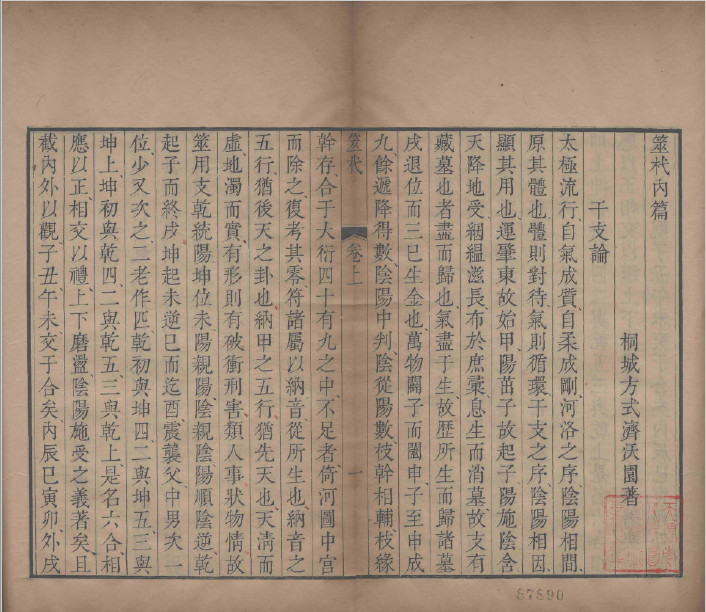 筮杙內篇
桐城方式濟沃園著
干支論
太極流行、自氣成質、自柔成剛、河洛之序、陰陽相間、
原其體也、體則對待、氣則循環、干支之序、陰陽相因、
顯其用也、運肇東、故始甲、陽茁子、故起子、陽施陰含
天降地受、絪縕滋長、布於庶彙、息生而消墓、故支有
藏墓也者、盡而歸也、氣盡于生、故歷所生而歸諸墓
戌退位而三巳生金也、萬物闢子而闔申、子至申成
九、餘遞降得數、陰陽中判、陰從陽數、枝幹相輔、枝緣
筮杙
卷上
一
幹存、合于大衍四十有九之中、不足者、倚河圖中宮
而除之、復考其零符諸屬、以納音從所生也、納音之
五行、猶後天之卦也、納甲之五行、猶先天也、天清而
虛、地濁而實、有形則有破、衝刑害、類人事、狀物情、故
筮用支、乾統陽、坤位未、陽親陽、陰親陰、陽順陰逆、乾
起子而終戌、坤起未逆巳而迄酉、震襲父、中男次一
位、少又次之、二老作匹、乾初與坤四、二與坤五、三與
坤上、坤初與乾四、二與乾五、三與乾上、是名六合、相
應以正、相交以禮、上下磨盪、陰陽施受之義著矣、且
截內外以觀、子丑午未交于合矣、內辰巳寅卯、外戌
87890